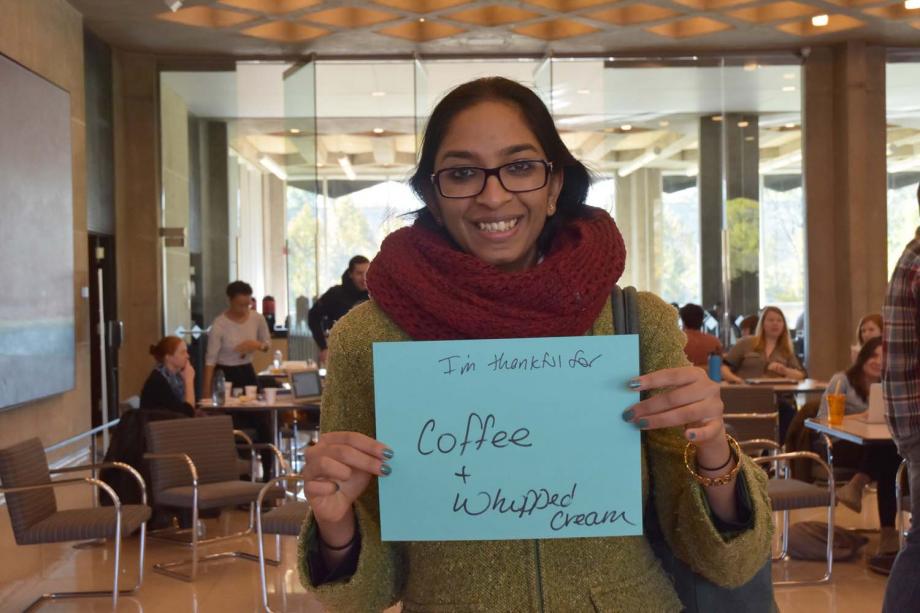 I'm thankful for
Coffee
+
Whipped
cream